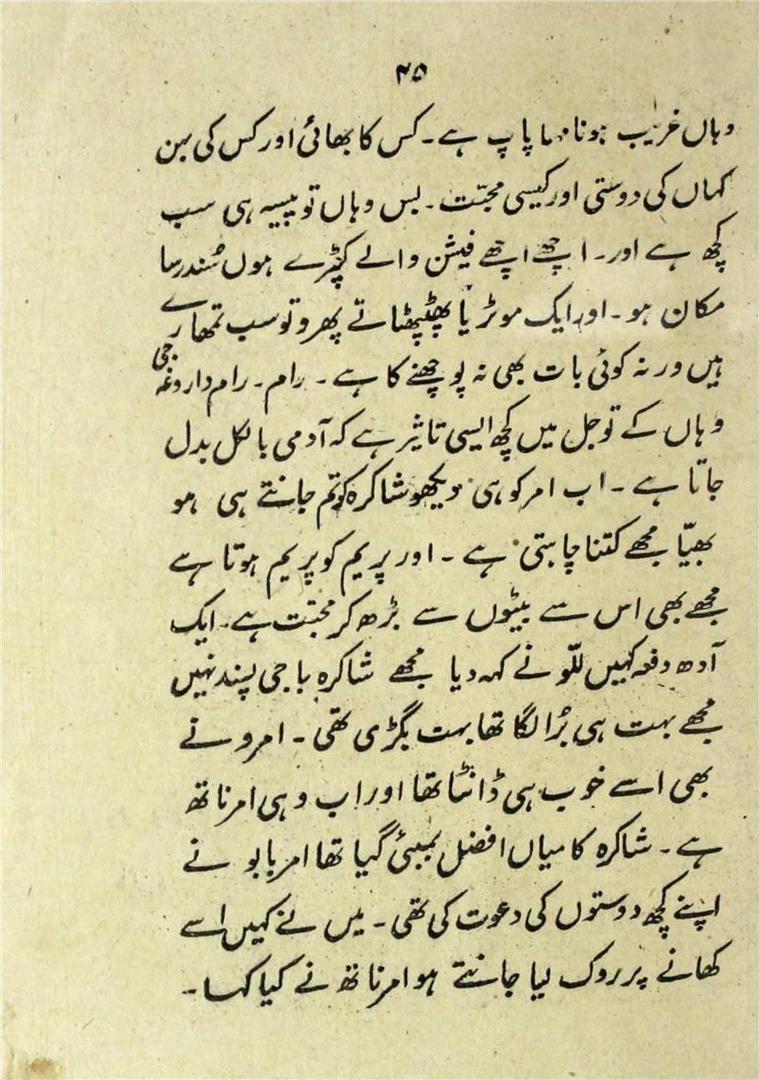 ۴۵
وہاں غریب ہونا مہا پاپ ہے۔ کس کا بھائی اور کس کی بہن
کہاں کی دوستی اور کیسی محبّت۔ بس وہاں تو پیسہ ہی سب
کچھ ہے اور۔ اچھے اچھے فیشن والے کپڑے ہوں سُندر سا
مکان ہو۔ اور ایک موٹر یا پھٹپھٹاتے پھرو تو سب تمھارے
ہیں ورنہ کوئی بات بھی نہ پوچھنے کا ہے۔ رام۔ رام داروغہ جی
وہاں کے تو جل میں کچھ ایسی تاثیر ہے کہ آدمی بالکل بدل
جاتا ہے۔ اب امر کو ہی دیکھو شاکرہ کو تم جانتے ہی ہو
بھیّا مجھے کتنا چاہتی ہے۔ اور پریم کو پریم ہوتا ہے
مجھے بھی اس سے بیٹوں سے بڑھ کر محبّت ہے۔ ایک
آدھ دفعہ کہیں للّو نے کہہ دیا مجھے شاکرہ باجی پسند نہیں
مجھے بہت ہی بُرا لگا تھا بہت بگڑی تھی۔ امرو نے
بھی اسے خوب ہی ڈانٹا تھا اور اب وہی امرناتھ
ہے۔ شاکرہ کا میاں افضل بمبئی گیا تھا امر بابو نے
اپنے کچھ دوستوں کی دعوت کی تھی۔ میں نے کہیں اسے
کھانے پر روک لیا جانتے ہو امرناتھ نے کیا کہا۔